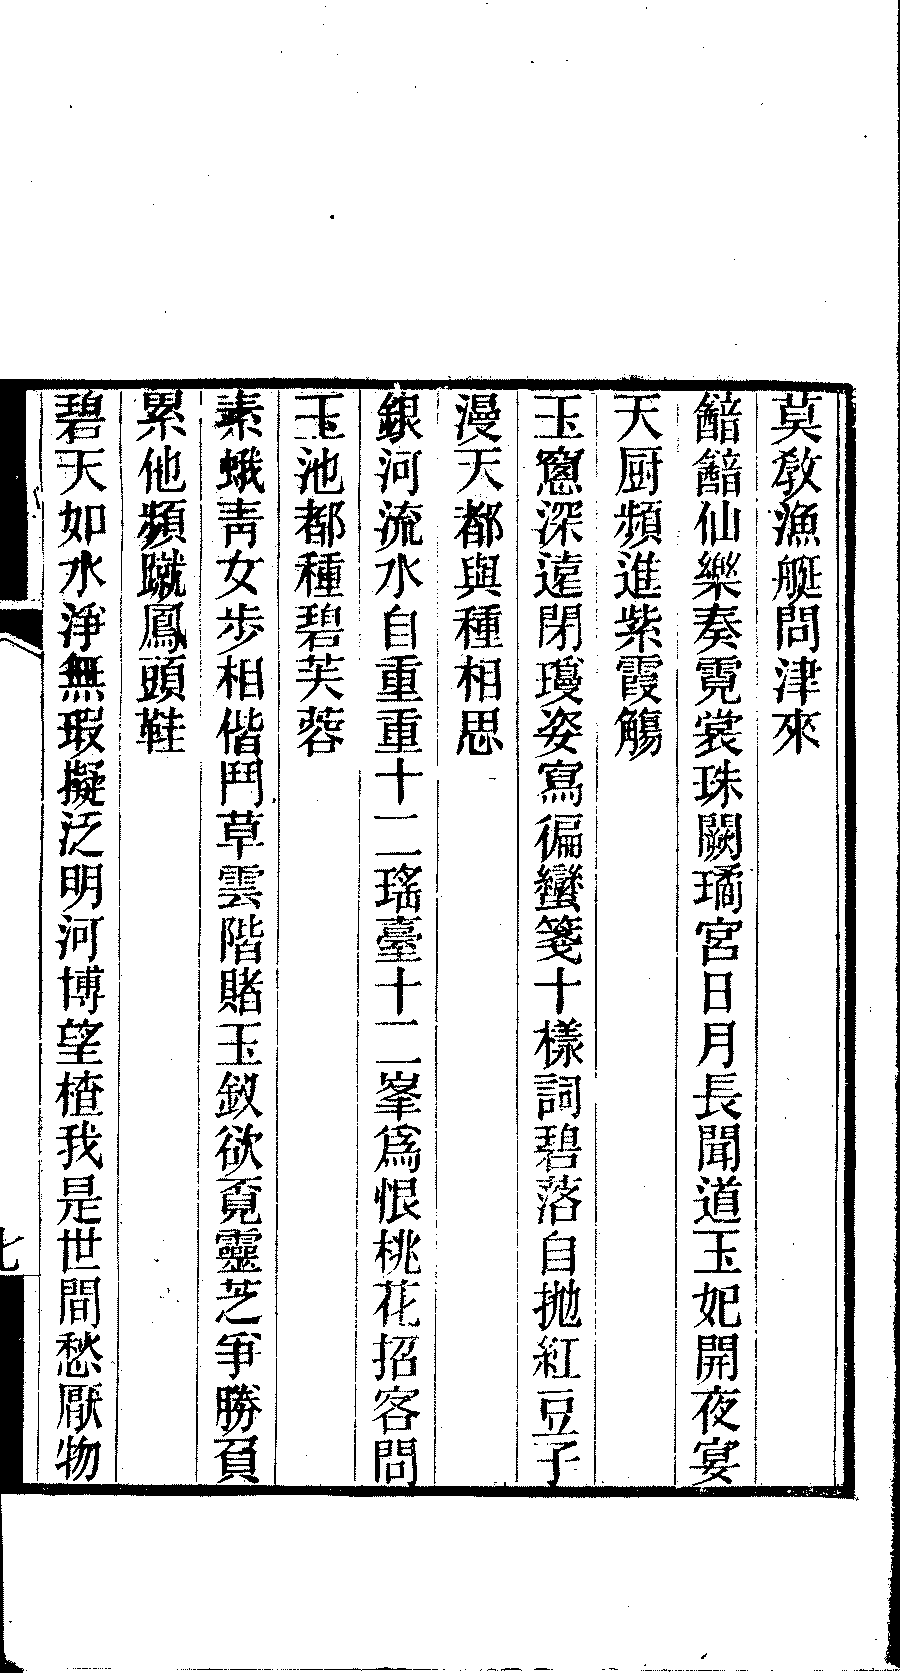 莫教漁艇問津來
韽韽仙樂奏霓裳珠闕璚宮日月長聞道玉妃開夜宴
天厨頻進紫霞觴
玉窻深遠閉瓊姿寫徧蠻箋十樣詞碧落自拋紅豆子
漫天都與種相思
銀河流水自重重十二瑤臺十二峯爲恨桃花招客問
玉池都種碧芙蓉
素蛾靑女步相偕鬥草雲階賭玉釵欲覓靈芝爭勝負
累他頻蹴鳳頭鞋
碧天如水淨無瑕擬泛明河博望楂我是世間愁厭物
七